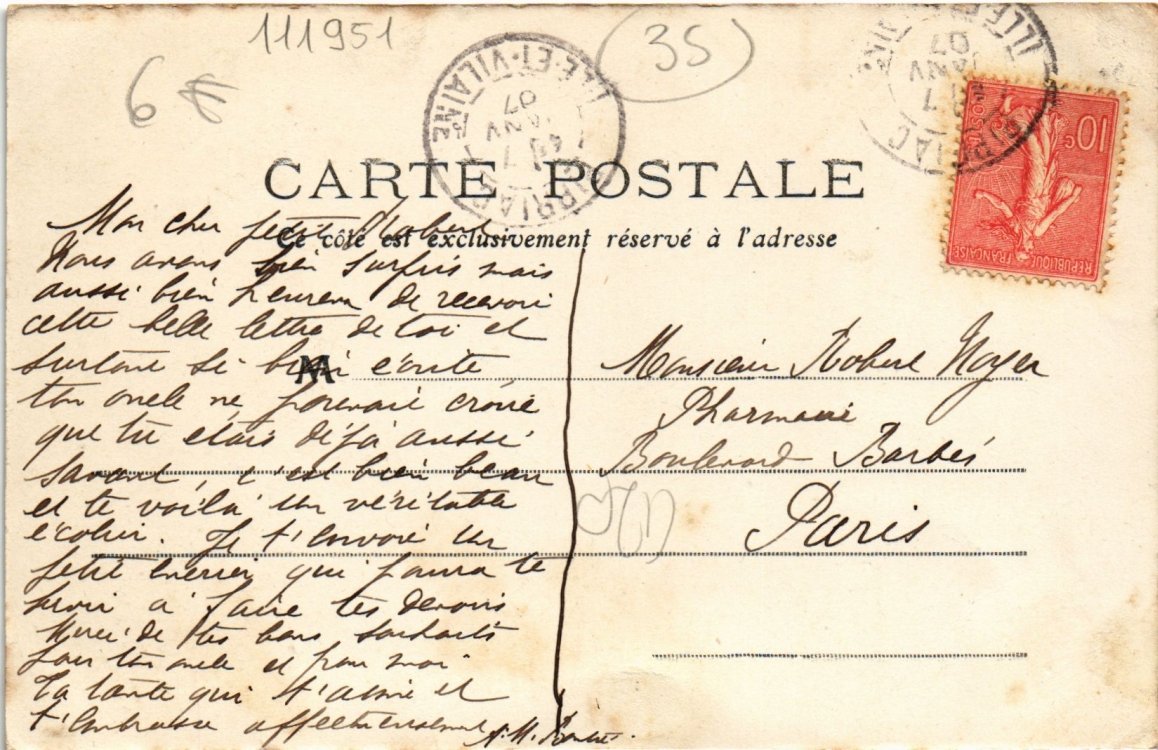 111951
35
6
PIPRIAC
ILLE-ET-VILAINE
JANV
07
PIPRIAC
ILLE
JANV
07
10c
REPUBLIQUE FRANÇAISE
CARTE POSTALE
Ce côté est exclusivement réservé à l'adresse
Mon cher petit Robert
Nous avons bien surpris mais
aussi bien heureux de recevoir
cette belle lettre de toi et
surtout si bien écrite
ton oncle ne pouvait croire
que tu étais déjà aussi
savant, c'est bien beau
et te voilà un véritable
écolier. Je t'envoie un
petit encrier qui pourra te
servir à faire tes devoirs
Merci de tes bons souhaits
pour ton oncle et pour moi
Ta tante qui t'aime et
t'embrasse affectueusement
A.M.
M
Monsieur Robert Noyer
Pharmacie
Boulevard Barbès
Paris